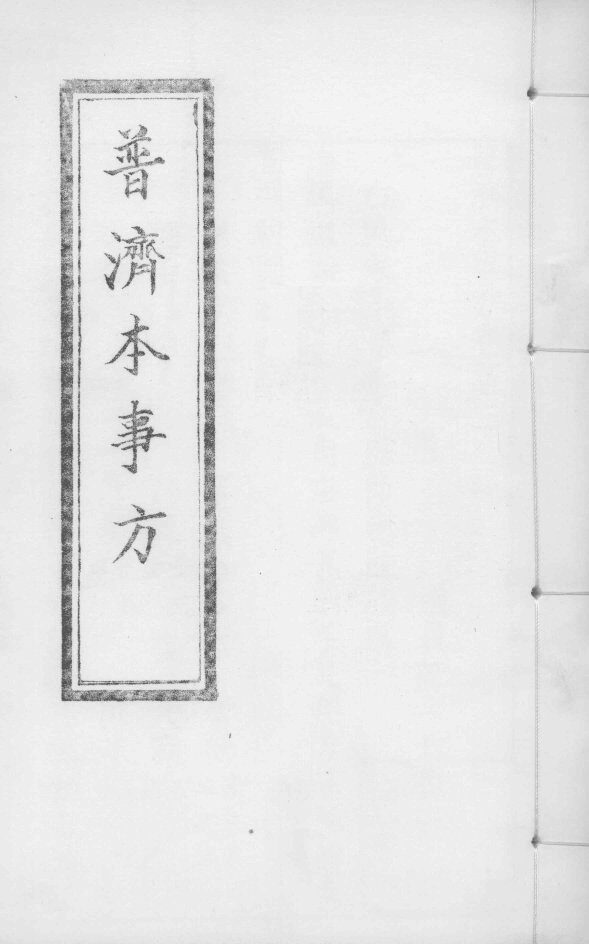 普濟本事方